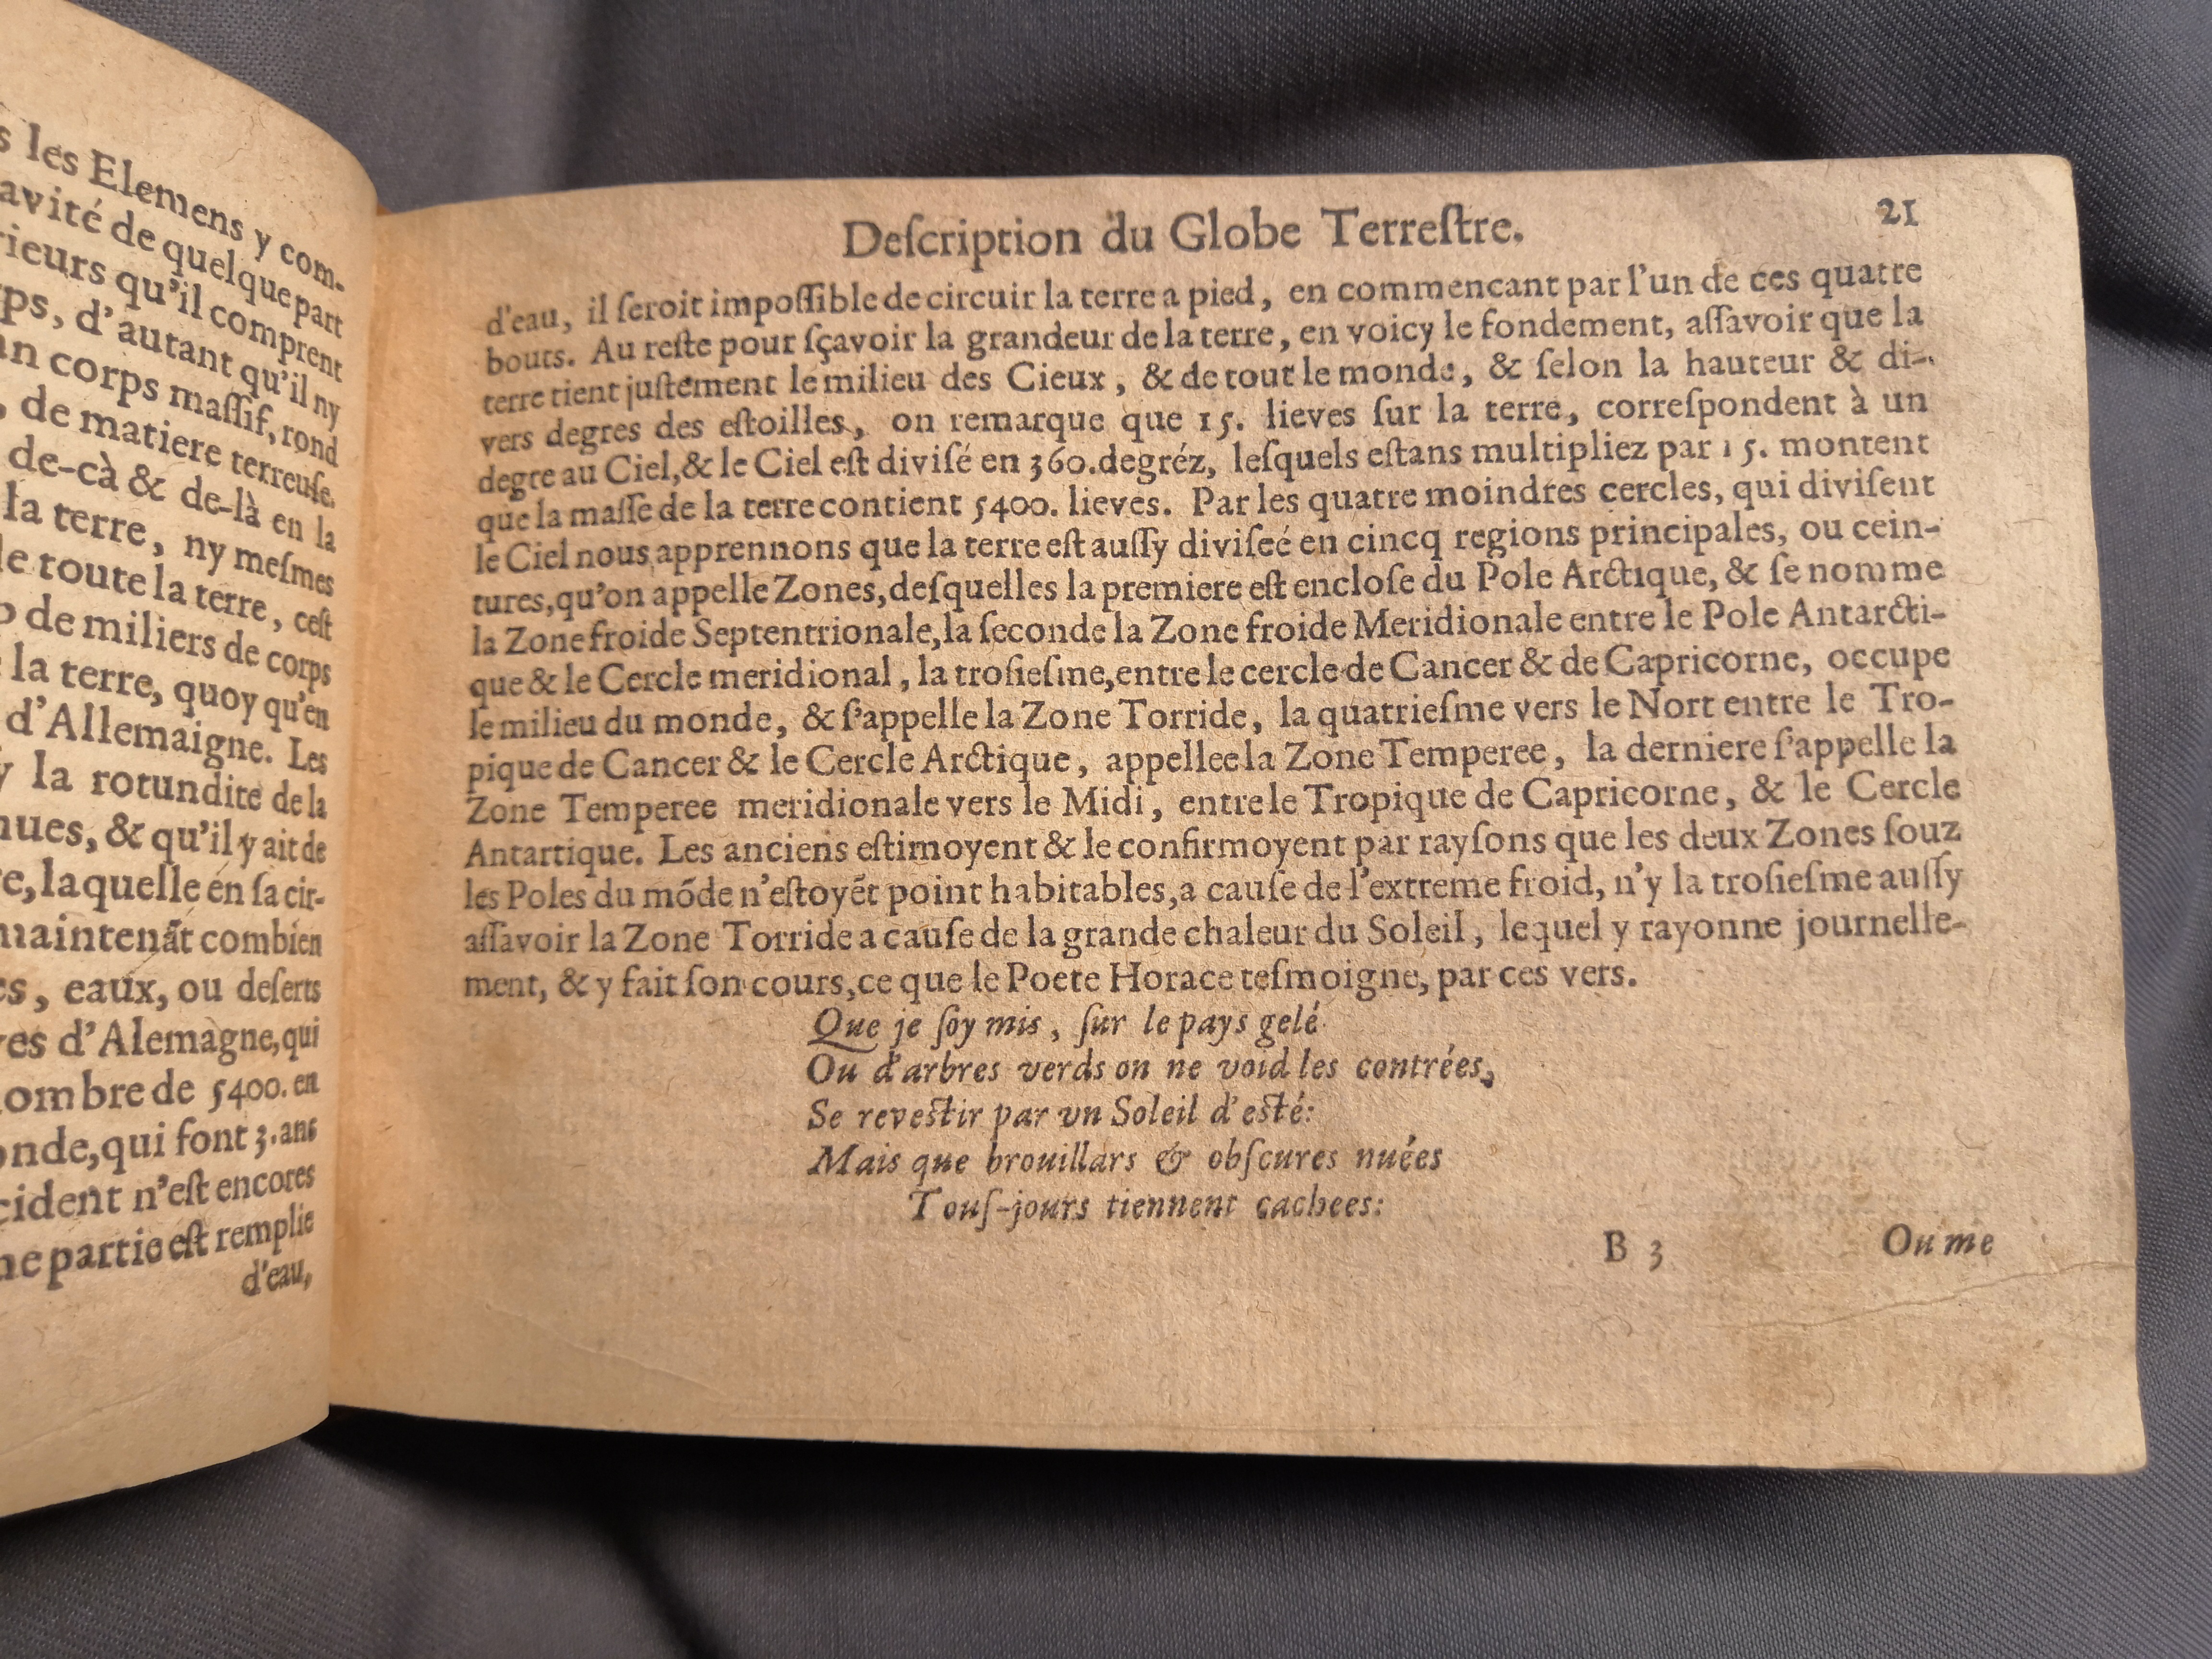 s les Elemens y com-
avité de quelque part
rieurs qu'il comprent
ps, d'autant qu'il ny
an corps maſſif, rond
, de matiere terreuſe.
de-cà & de-là en la
la terre, ny meſmes
le toute la terre, ceſt
o de miliers de corps
la terre, quoy qu'en
d'Allemaigne. Les
y la rotundite de la
nues, & qu'il y ait de
e, laquelle en ſa cir-
maintenãt combien
es, eaux, ou deſerts
ves d'Alemagne, qui
ombre de 5400. en
onde, qui font 3. ans
cident n'eſt encores
ne partie eſt remplie
d'eau,
Deſcription du Globe Terreſtre. 21
d'eau, il ſeroit impoſſible de circuir la terre a pied, en commencant par l'un de ces quatre
bouts. Au reſte pour ſçavoir la grandeur de la terre, en voicy le fondement, aſſavoir que la
terre tient juſtement le milieu des Cieux, & de tout le monde, & ſelon la hauteur & di-
vers degres des eſtoilles, on remarque que 15. lieves ſur la terre, correſpondent à un
degre au Ciel, & le Ciel eſt diviſé en 360. degréz, leſquels eſtans multipliez par 15. montent
que la maſſe de la terre contient 5400. lieves. Par les quatre moindres cercles, qui diviſent
le Ciel nous apprennons que la terre eſt auſſy diviſeé en cincq regions principales, ou cein-
tures, qu'on appelle Zones, deſquelles la premiere eſt encloſe du Pole Arctique, & ſe nomme
la Zone froide Septentrionale, la ſeconde la Zone froide Meridionale entre le Pole Antarcti-
que & le Cercle meridional, la troſieſme, entre le cercle de Cancer & de Capricorne, occupe
le milieu du monde, & ſ'appelle la Zone Torride, la quatrieſme vers le Nort entre le Tro-
pique de Cancer & le Cercle Arctique, appellee la Zone Temperee, la derniere ſ'appelle la
Zone Temperee meridionale vers le Midi, entre le Tropique de Capricorne, & le Cercle
Antartique. Les anciens eſtimoyent & le confirmoyent par rayſons que les deux Zones ſouz
les Poles du móde n'eſtoyét point habitables, a cauſe de l'extreme froid, n'y la troſieſme auſſy
aſſavoir la Zone Torride a cauſe de la grande chaleur du Soleil, lequel y rayonne journelle-
ment, & y fait ſon cours, ce que le Poete Horace teſmoigne, par ces vers.
Que je ſoy mis, ſur le pays gelé
Ou d'arbres verds on ne void les contrées,
Se reveſtir par vn Soleil d'eſté:
Mais que brouillars & obſcures nuées
Touſ-jours tiennent cachees:
B 3 Ou me